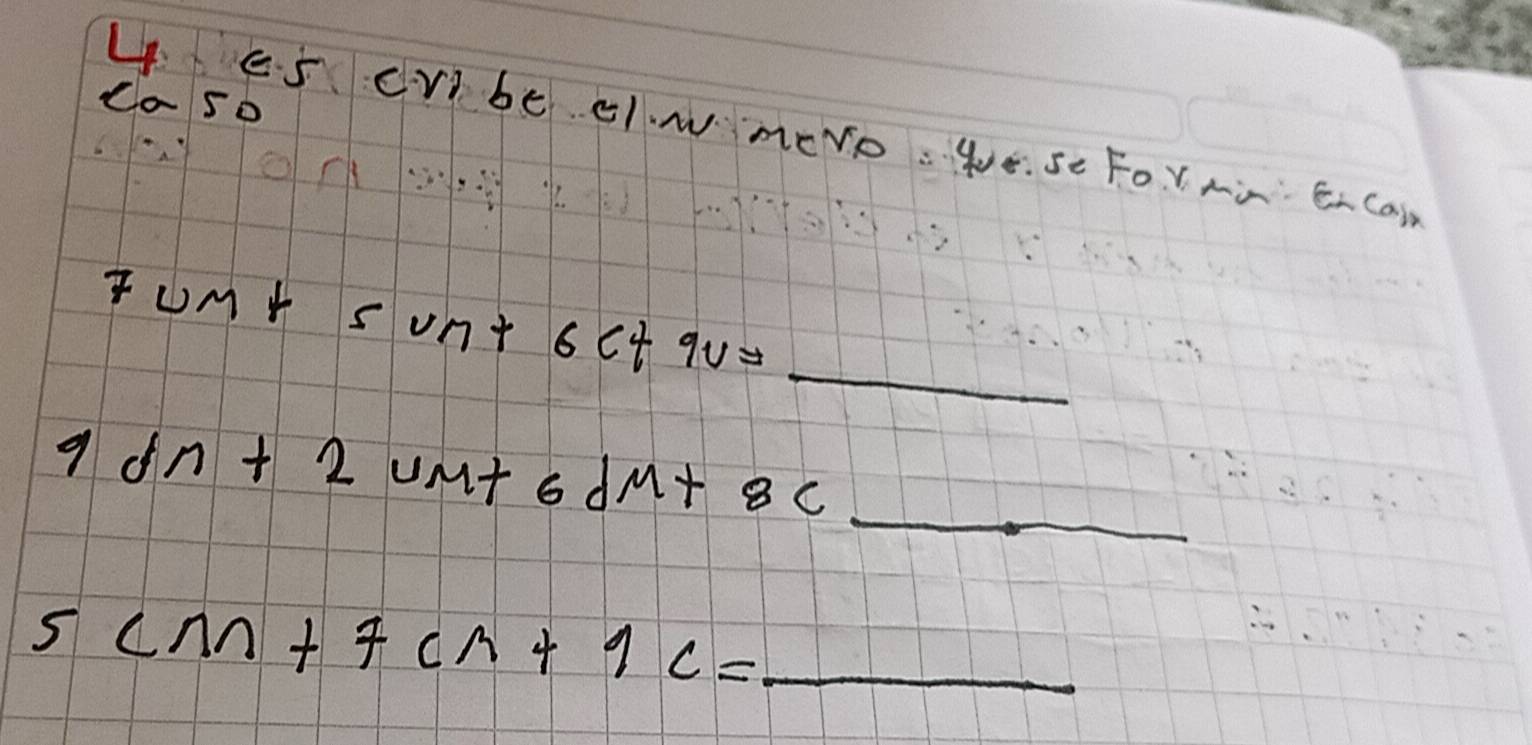 4 es cribe el nu mero que se Formin En cada
caso
7 UM + 5 Um + 6 C + 9U =
9 dm + 2 UM + 6 dM + 8 C
5 cmm + 7 cm + 9 c =